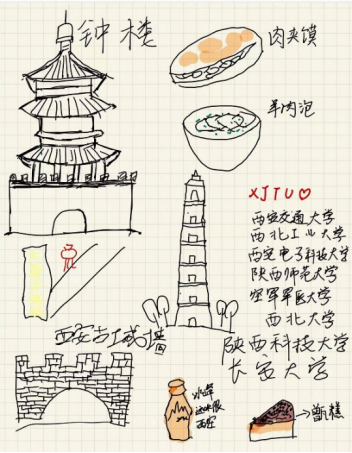 钟楼
肉夹馍
羊肉泡
XJTU
西安交通大学
西北工业大学
西安电子科技大学
陕西师范大学
空军军医大学
西北大学
陕西科技大学
长安大学
西安古城墙
冰峰
西安
甑糕